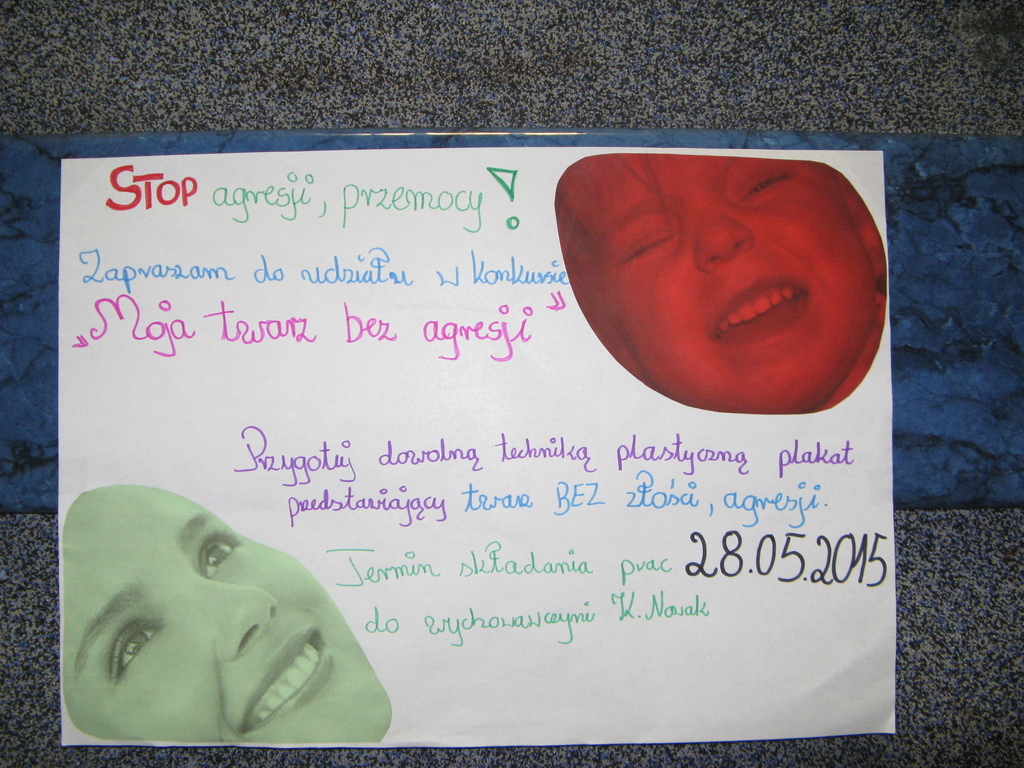 STOP agresji, przemocy!
Zapraszam do udziału w konkursie
„Moja twarz bez agresji”
Przygotuj dowolną techniką plastyczną plakat
przedstawiający twarz BEZ złości, agresji.
Termin składania prac 28.05.2015
do wychowawczyni K. Nowak